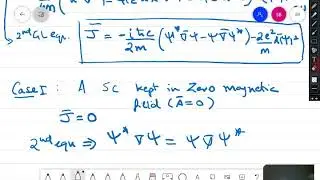 2nd GL eqn.
J̄ = -iħe/2m (ψ* ∇̄ψ - ψ∇̄ψ*) - 2e²/m Ā|ψ|²
Case I : A SC kept in Zero magnetic
field (Ā=0)
J̄ = 0
2nd eqn ⇒ ψ* ∇̄ψ = ψ ∇̄ψ*